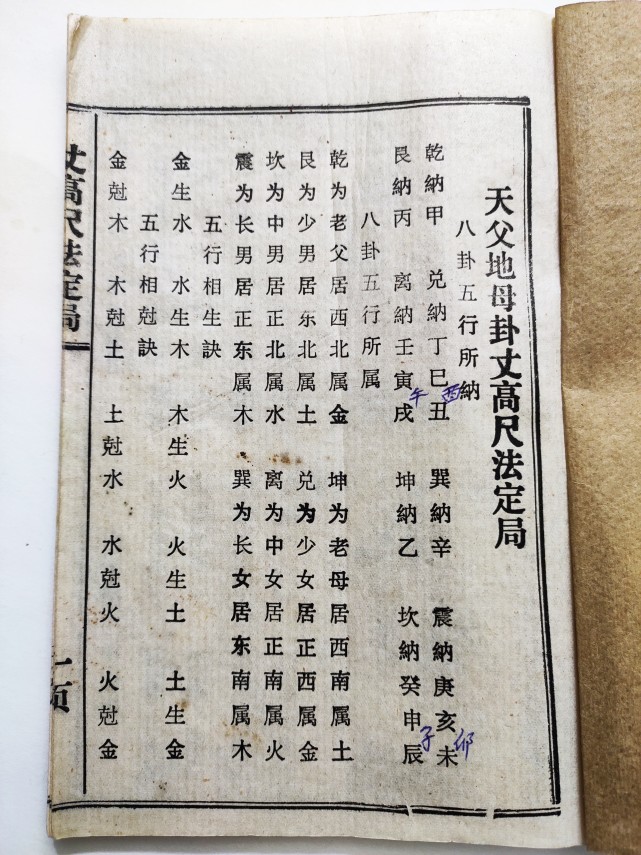 天父地母卦丈高尺法定局
八卦五行所納
乾納甲 兑納丁巳酉丑 巽納辛 震納庚亥卯未
艮納丙 离納壬寅午戌 坤納乙 坎納癸申子辰
八卦五行所属
乾为老父居西北属金 坤为老母居西南属土
艮为少男居东北属土 兑为少女居正西属金
坎为中男居正北属水 离为中女居正南属火
震为长男居正东属木 巽为长女居东南属木
五行相生訣
金生水 水生木 木生火 火生土 土生金
五行相尅訣
金尅木 木尅土 土尅水 水尅火 火尅金
丈高尺法定局